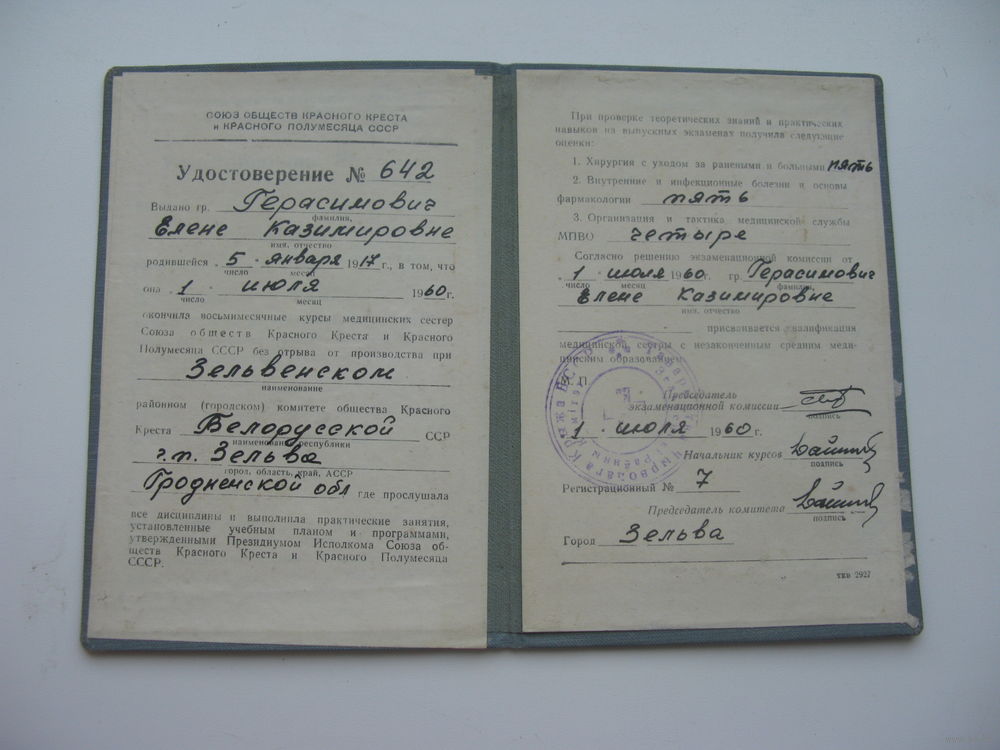 СОЮЗ ОБЩЕСТВ КРАСНОГО КРЕСТА
и КРАСНОГО ПОЛУМЕСЯЦА СССР
Удостоверение № 642
Выдано гр. Герасимович
фамилия,
Елене Казимировне
имя, отчество
родившейся „ 5 " января 1917 г., в том, что
число месяц
она „ 1 " июля 1960 г.
число месяц
окончила восьмимесячные курсы медицинских сестер
Союза обществ Красного Креста и Красного
Полумесяца СССР без отрыва от производства при
Зельвенском
наименование
районном (городском) комитете общества Красного
Креста Белорусской ССР
наименование республики
г.п. Зельва
город, область, край, АССР
Гродненской обл где прослушала
все дисциплины и выполнила практические занятия,
установленные учебным планом и программами,
утвержденными Президиумом Исполкома Союза об-
ществ Красного Креста и Красного Полумесяца
СССР.
При проверке теоретических знаний и практических
навыков на выпускных экзаменах получила следующие
оценки:
1. Хирургия с уходом за ранеными и больными пять
2. Внутренние и инфекционные болезни и основы
фармакологии пять
3. Организация и тактика медицинской службы
МПВО четыре
Согласно решению экзаменационной комиссии от
„ 1 " июля 1960 г. гр. Герасимович
число месяц фамилия,
Елене Казимировне
имя, отчество
присваивается квалификация
медицинской сестры с незаконченным средним меди-
цинским образованием
М. П.
Председатель
экзаменационной комиссии
подпись
1 июля 1960 г.
Начальник курсов
подпись
Регистрационный № 7
Председатель комитета
подпись
Город Зельва
ТКВ 2927